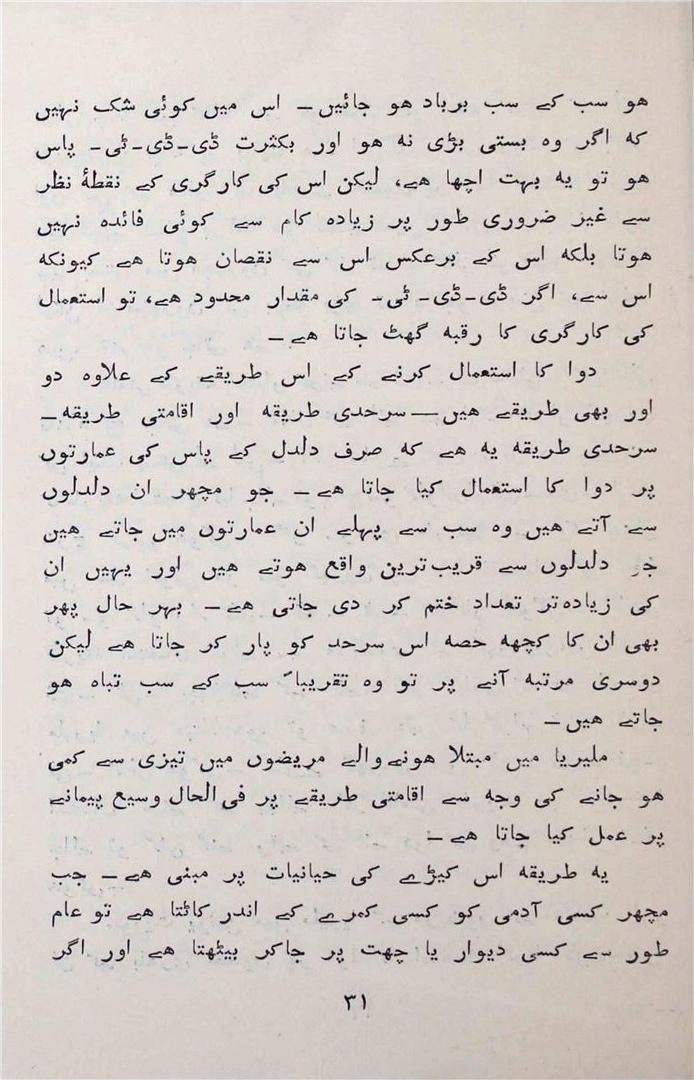 هو سب کے سب برباد هو جائیں ــ اس میں کوئی شک نہیں
که اگر وه بستی بڑی نه هو اور بکثرت ڈی۔ڈی۔ٹی۔ پاس
هو تو یه بہت اچھا هے، لیکن اس کی کارگری کے نقطۂ نظر
سے غیر ضروری طور پر زیاده کام سے کوئی فائده نہیں
هوتا بلکه اس کے برعکس اس سے نقصان هوتا هے کیونکه
اس سے، اگر ڈی۔ڈی۔ ٹی۔ کی مقدار محدود هے، تو استعمال
کی کارگری کا رقبه گھٹ جاتا هے ــ
دوا کا استعمال کرنے کے اس طریقے کے علاوه دو
اور بھی طریقے هیں ــــ سرحدی طریقه اور اقامتی طریقه ــ
سرحدی طریقه یه هے که صرف دلدل کے پاس کی عمارتوں
پر دوا کا استعمال کیا جاتا هے ــ جو مچھر ان دلدلوں
سے آتے هیں وه سب سے پہلے ان عمارتوں میں جاتے هیں
جو دلدلوں سے قریب ترین واقع هوتے هیں اور یہیں ان
کی زیاده تر تعداد ختم کر دی جاتی هے ــ بہر حال پھر
بھی ان کا کچھه حصه اس سرحد کو پار کر جاتا هے لیکن
دوسری مرتبه آنے پر تو وه تقریباً سب کے سب تباه هو
جاتے هیں ــ
ملیریا میں مبتلا هونے والے مریضوں میں تیزی سے کمی
هو جانے کی وجه سے اقامتی طریقے پر فی الحال وسیع پیمانے
پر عمل کیا جاتا هے ــ
یه طریقه اس کیڑے کی حیانیات پر مبنی هے ــ جب
مچھر کسی آدمی کو کسی کمرے کے اندر کاٹتا هے تو عام
طور سے کسی دیوار یا چھت پر جاکر بیٹھتا هے اور اگر
۳۱